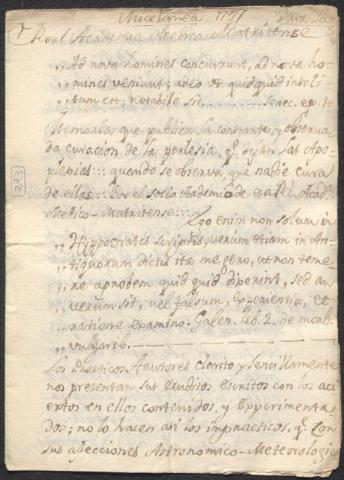 Miscelanea 1797 Para la
Real Academia Medica Matritense
,, Ad nova homines concurrunt, ad nova ho-
,, mines veniunt; adeo ut quid quid insoli-
,, tum est, notabile sit.
Memorias que publica la constante, y observa
da curacion de la perlesia, q.e dejan las Apo-
plegias: quando se observa, que nadie cura
de ellas. Por el socio Academico de esa R.l Acad.a
Medico-Matritense.
Ego enim non solum in
,, Hippocratis scriptis, verum etiam in An-
,, tiquorum dictis ita me gero, ut non teme-
,, re aprobem quid quid dixerint, sed an
,, verum sit, vel falsum, experientia, et
,, ratione examino. Galen. Lib. 2. de morb.
,, vulgaris.
Los Practicos Autores clarito, y sencillamente
nos presentan sus eruditos escritos con los aci
ertos en ellos contenidos, y experimenta
dos; no lo hacen asi los impracticos, q.e con
sus afecciones Astronomico-Meteorologico
273